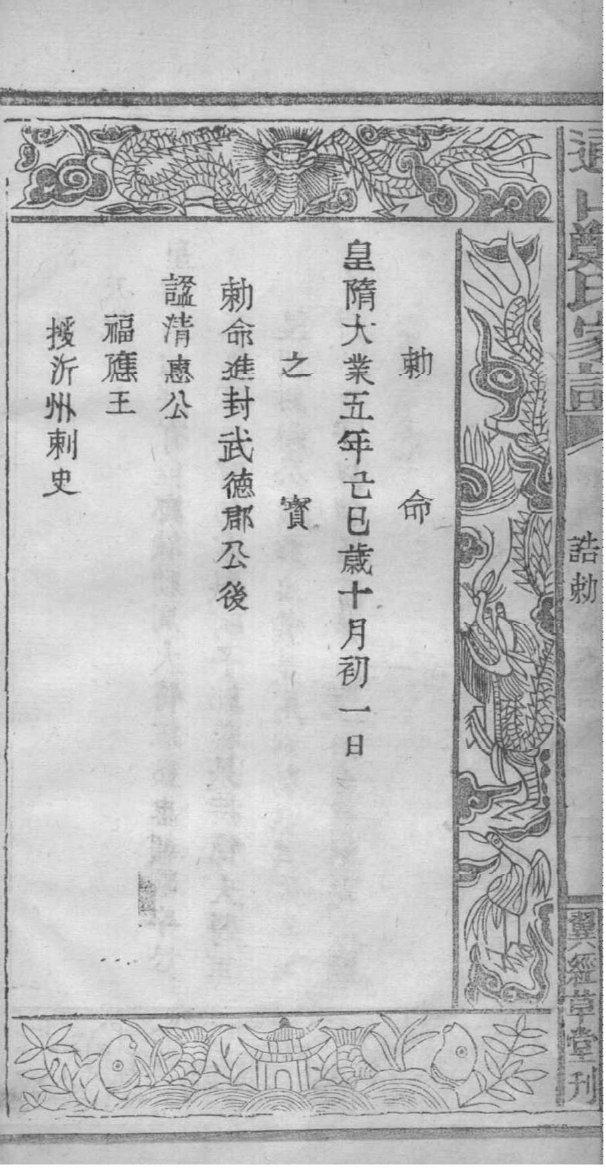 勅命
皇隋大業五年亡巳歳十月初一日
之寳
勅命進封武德郡公後
諡清惠公
福應王
授沂州刺史
鄭氏家
誥勅
經草堂刊